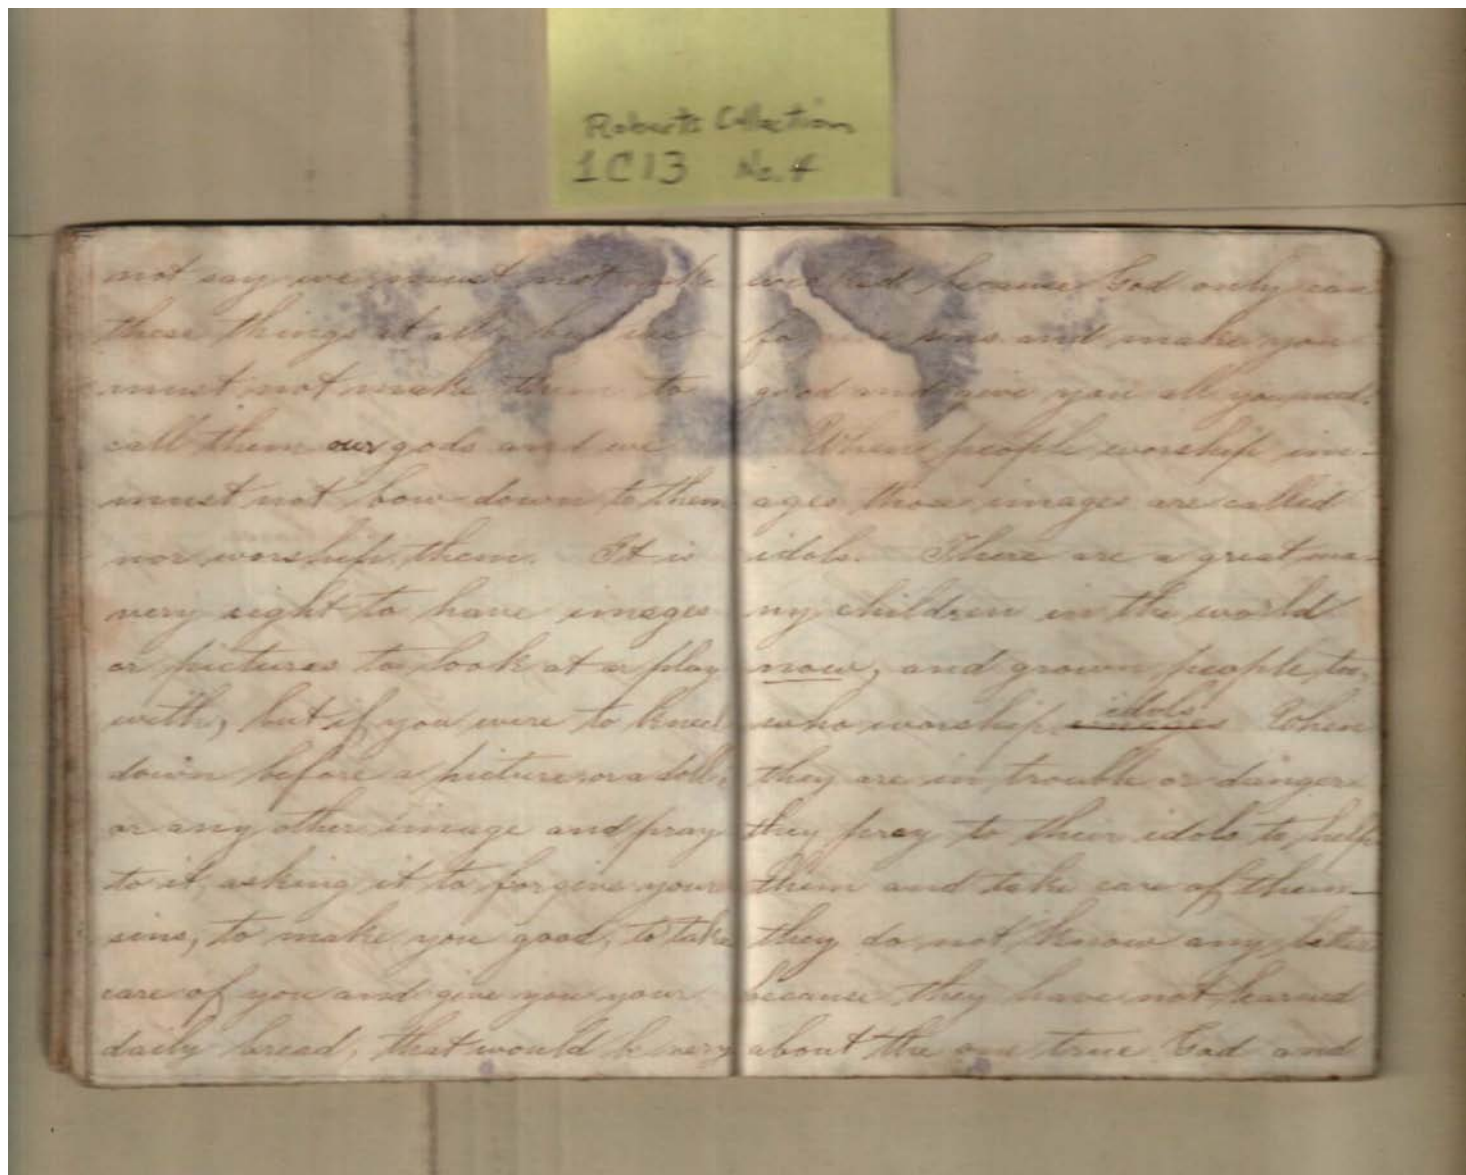 Roberts Collection
1C13 No. 4
not say we must not make
these things at all, but we
must not make them to
call them our gods and we
must not bow down to them
nor worship them. It is
very right to have images
or pictures to look at or play
with, but if you were to kneel
down before a picture or a doll,
or any other image and pray
to it, asking it to forgive your
sins, to make you good, to take
care of you and give you your
daily bread, that would be very
wicked because God only can
forgive sins and make you
good and give you all you need.
When people worship im-
ages those images are called
idols. There are a great ma-
ny children in the world
now, and grown people, too,
who worship idols When
they are in trouble or danger
they pray to their idols to help
them and take care of them—
they do not know any better
because they have not learned
about the one true God and